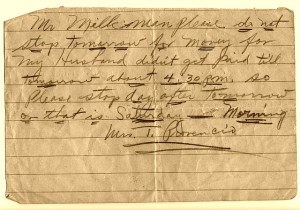 Mr Milk Man please do not
stop tomorrow for money for
my Husband didn't get paid till
tomorrow about 4:30 p.m. so
Please stop day after tomorrow
or that is Saturday Morning
Mrs. T.